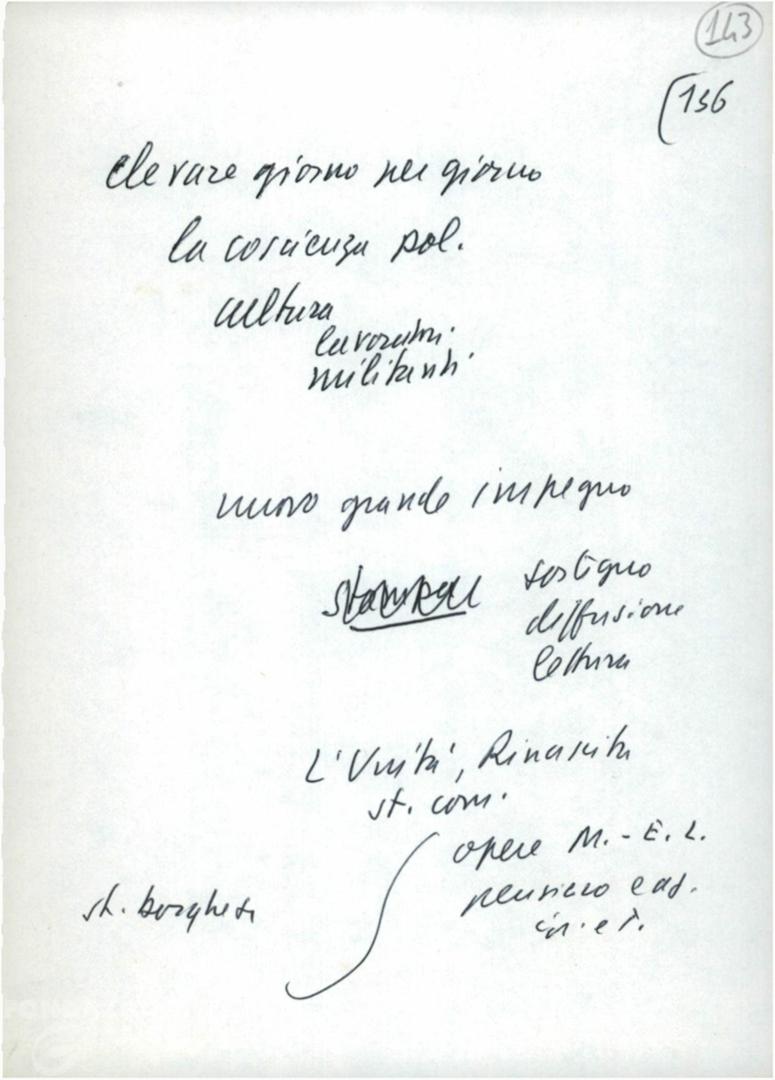 143
(136
elevare giorno per giorno
la coscienza pol.
cultura
lavoratori
militanti
nuovo grande impegno
stampa sostegno
diffusione
lettura
L'Unità, Rinascita
st. com.
opere M. - E. L.
st. borghese pensiero e